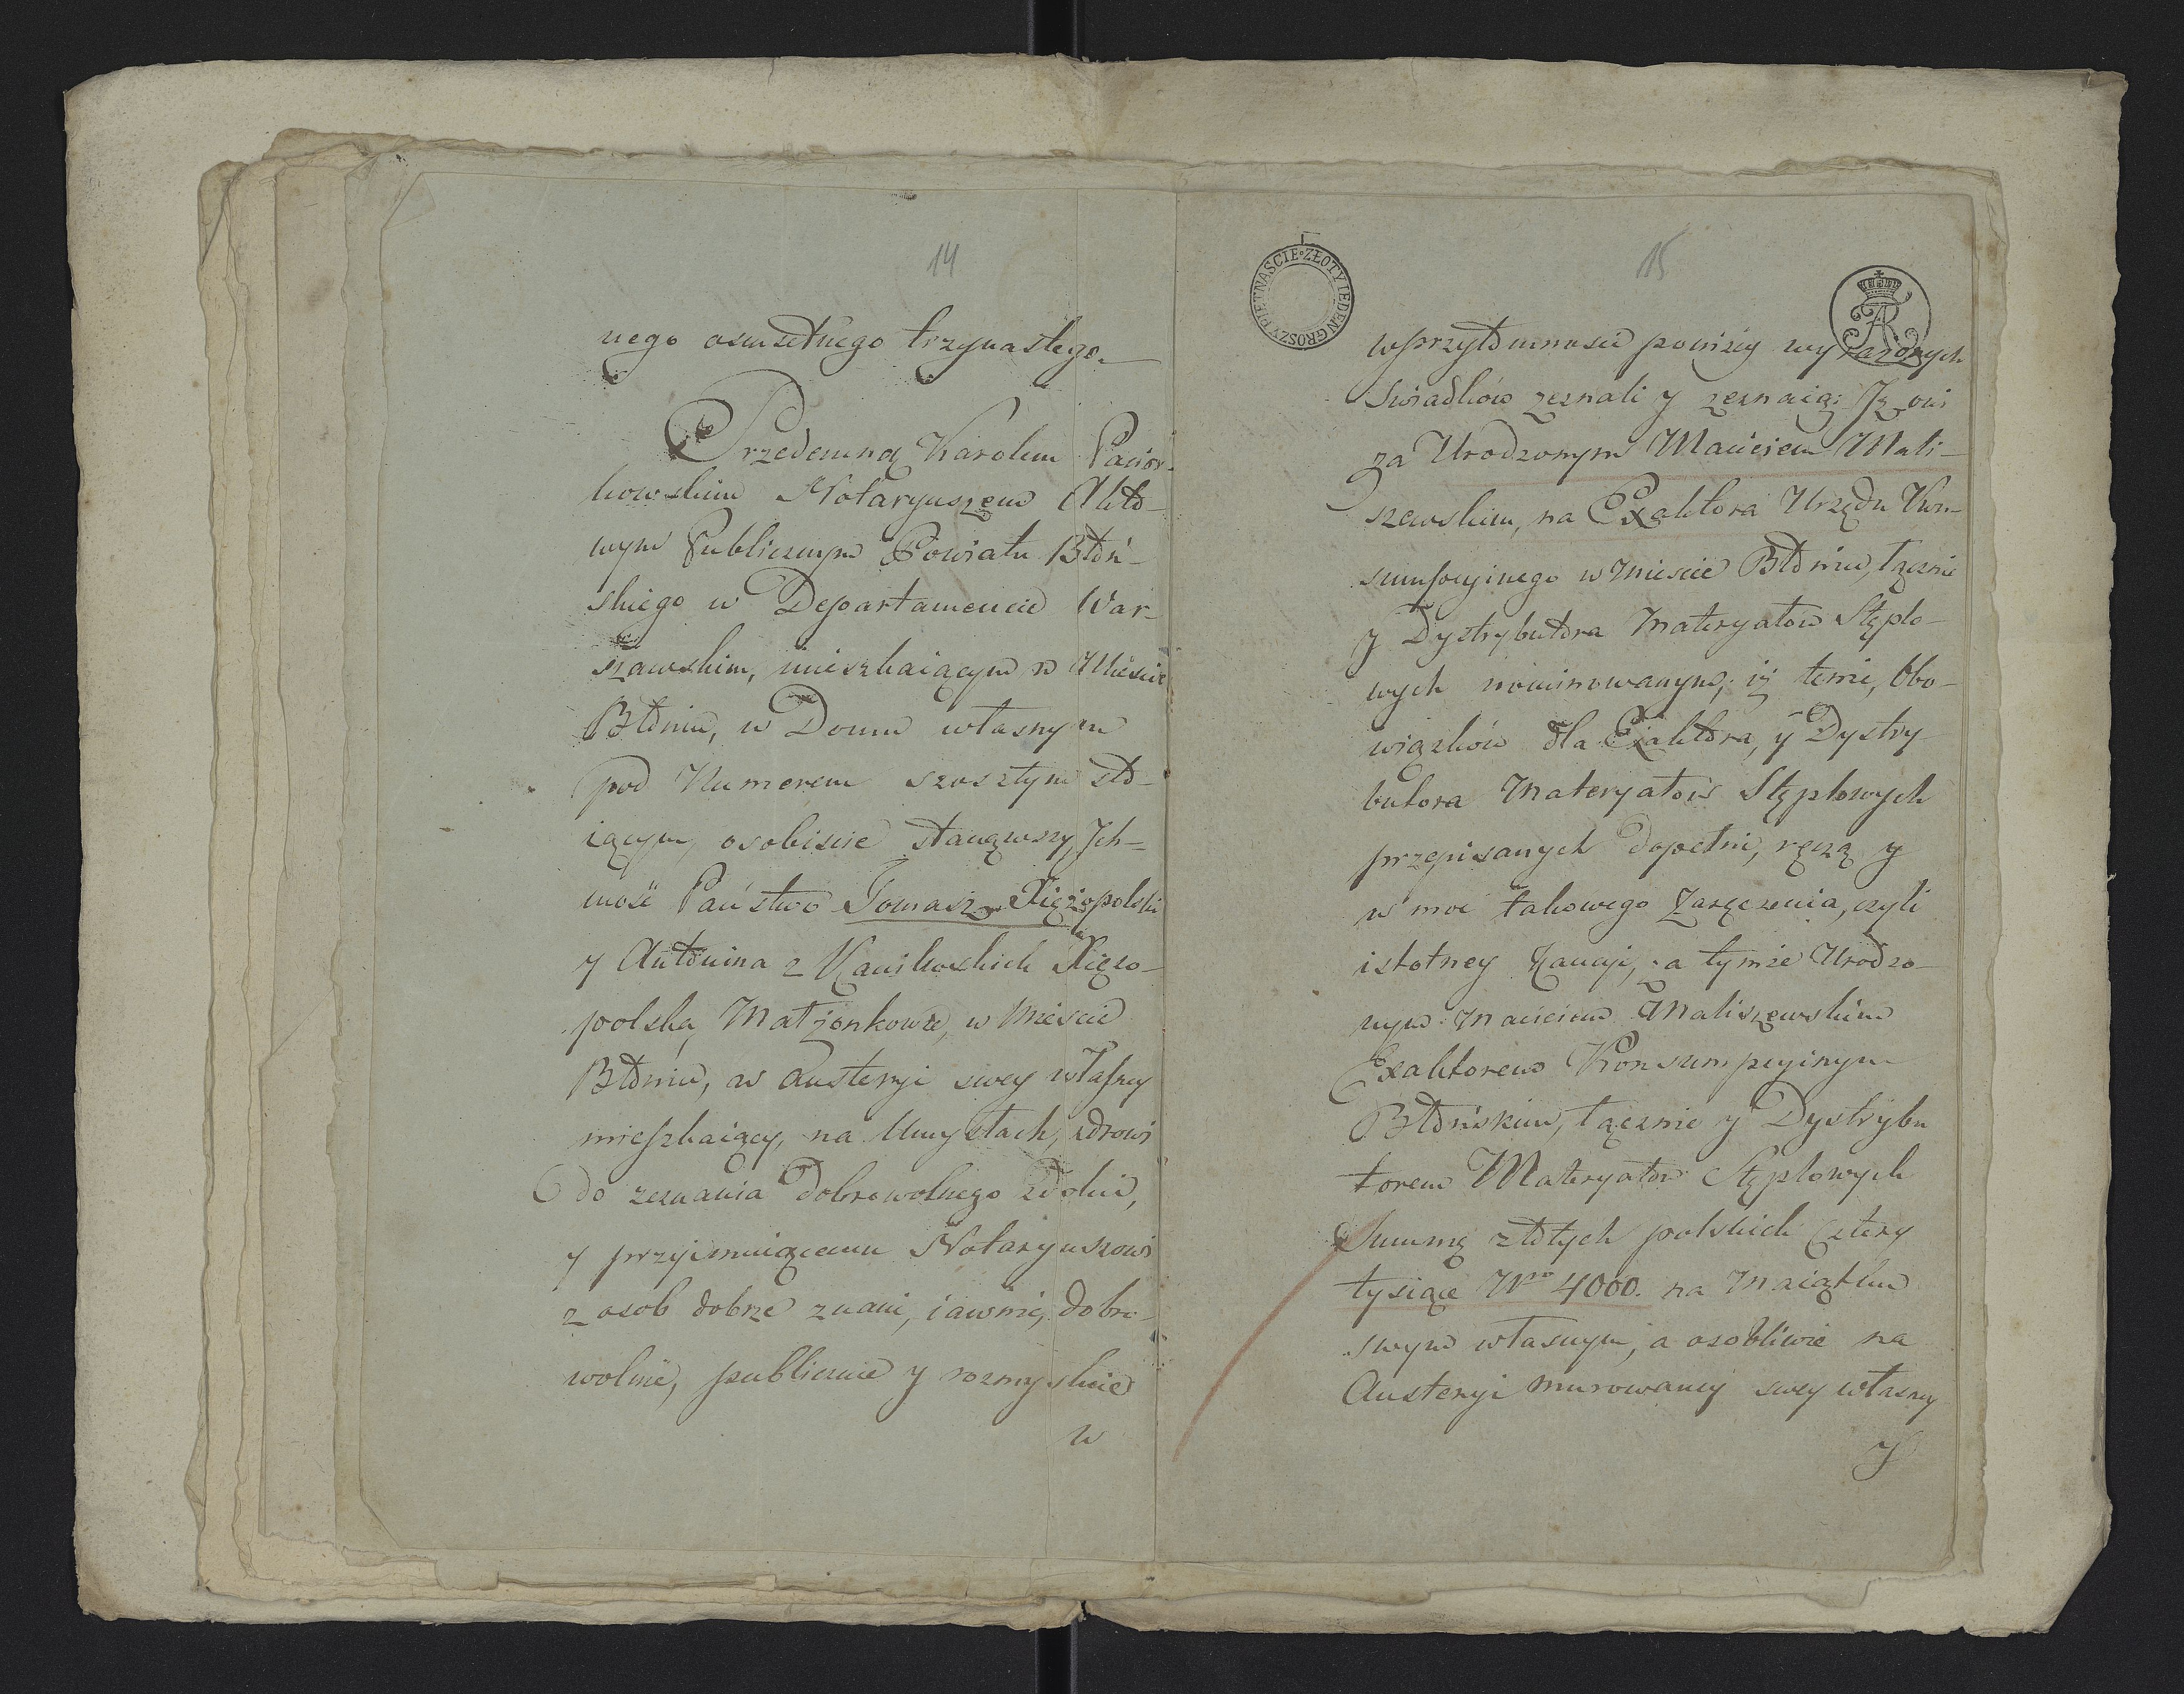 14
nego osmsetnego trzynastego.
Przedemną Karolem Pacior-
kowskim Notaryuszem Akto-
wym Publicznym Powiatu Błoń-
skiego w Departamencie War-
szawskim, mieszkaiącym w Mieście
Błoniu, w Domu własnym
pod Numerem szosztym sto-
iącym, osobiscie stanąwszy Jch-
mość Państwo Tomasz Xięzopolski
y Antonina z Kanikowskich Xięzo-
polską Małżonkowie, w Mieście
Błoniu, w Austeryi swey własney
mieszkaiący, na Umysłach zdrowi
do zeznania Dobrowolnego zdolni,
y przyimuiącemu Notaryuszowi
z osob dobrze znani, iawnie, dobro-
wolnie, publicznie y rozmyslnie
w
ZŁOTY IEDEN GROSZY PIĘTNASCIE
15
w przytomnosci poniżey wyrażonych
Swiadków zeznali y zeznaią: Jz oni
za Urodzonym Macieiem Mali-
szewskim, na Exaktora Urzędu Kon-
sumpcyinego w Mieście Błoniu, łącznie
y Dystrybutora Materyałow Stęplo-
wych nominowanym, iż temie, Obo-
wiązków dla Exaktora, y Dystry-
butora Materyałow Stęplowych
przepisanych dopełni, ręczą y
w moc takowego Zaręczenia, czyli
istotney Kaucyi, za tymże Urodzo-
nym Macieiem Maliszewskim
Exaktorem Konsumpcyinym
Błońskim, łącznie y Dystrybu
torem Materyałow Stęplowych
Summę złotych polskich Cztery
tysiące Nro 4000. na Maiątku
swym własnym, a osobliwie na
Austeryi murowaney swey własney
y